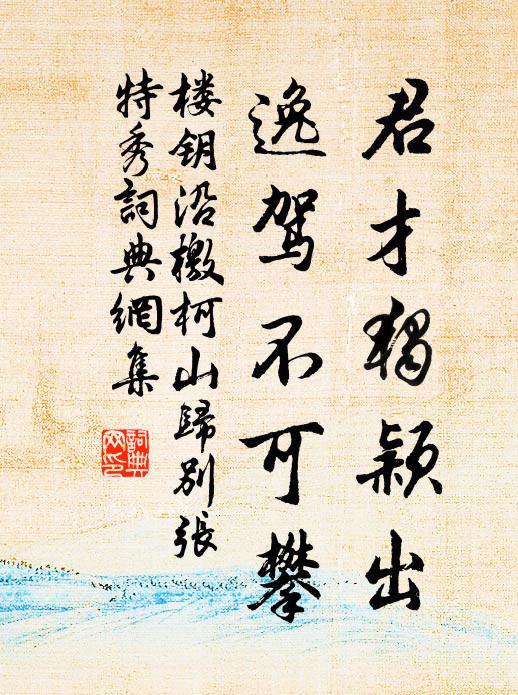 君才獨颖出
逸驾不可攀
楼钥沿檄柯山歸别張
特秀詞典網集
詞典
网印